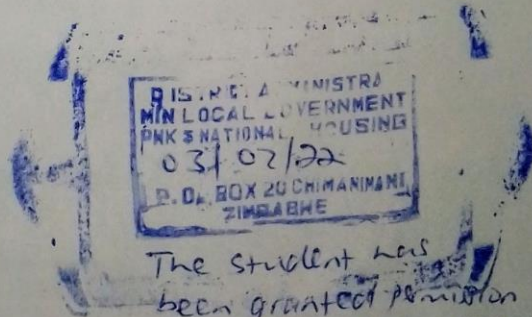 DISTRICT ADMINISTRA
MIN LOCAL GOVERNMENT
PNK & NATIONAL HOUSING
03/02/22
P.O. BOX 20 CHIMANIMANI
ZIMBABWE
The student has
been granted permission